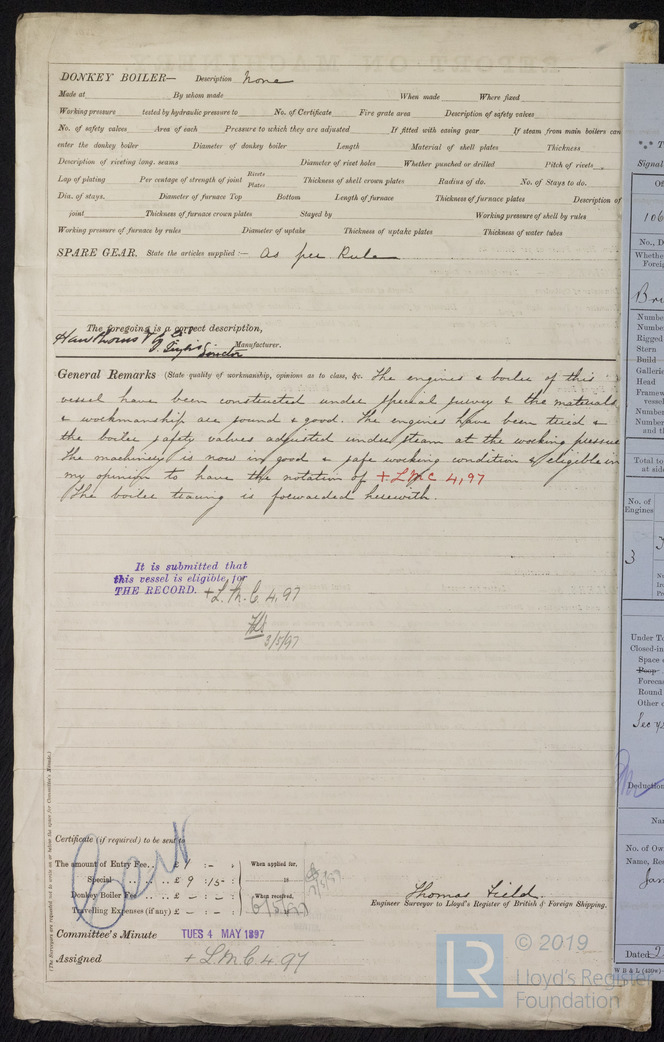 DONKEY BOILER— Description None
Made at By whom made When made Where fixed
Working pressure tested by hydraulic pressure to No. of Certificate Fire grate area Description of safety valves
No. of safety valves Area of each Pressure to which they are adjusted If fitted with easing gear If steam from main boilers can
enter the donkey boiler Diameter of donkey boiler Length Material of shell plates Thickness
Description of riveting long. seams Diameter of rivet holes Whether punched or drilled Pitch of rivets
Lap of plating Per centage of strength of joint Rivets Plates Thickness of shell crown plates Radius of do. No. of Stays to do.
Dia. of stays. Diameter of furnace Top Bottom Length of furnace Thickness of furnace plates Description of
joint Thickness of furnace crown plates Stayed by Working pressure of shell by rules
Working pressure of furnace by rules Diameter of uptake Thickness of uptake plates Thickness of water tubes
SPARE GEAR. State the articles supplied :— As per Rule
The foregoing is a correct description,
Hawthorns & Co
Director Manufacturer.
General Remarks (State quality of workmanship, opinions as to class, &c. The engines & boiler of this
vessel have been constructed under special survey & the materials
& workmanship are sound & good. The engines have been tried &
the boiler safety valves adjusted under steam at the working pressure
The machinery is now in good & safe working condition & eligible in
my opinion to have the notation of + LMC 4,97
The boiler tracing is forwarded herewith.
It is submitted that
this vessel is eligible for
THE RECORD. + L.M.C. 4.97
3/5/97
(The Surveyors are requested not to write on or below the space for Committee's Minute.)
Certificate (if required) to be sent to
The amount of Entry Fee.. £ 1 : - : When applied for,
Special .. .. .. £ 9 : 15 : 18
Donkey Boiler Fee .. .. £ - : - : When received,
Travelling Expenses (if any) £ - : - : 6/5/97
Thomas Field
Engineer Surveyor to Lloyd's Register of British & Foreign Shipping.
Committee's Minute TUES 4 MAY 1897
Assigned + L.M.C. 4.97
© 2019
LR Lloyd's Register
Foundation
*** T
Signal
106
No., D
Whethe
Foreig
Bri
Number
Numbe
Rigged
Stern
Build
Galleri
Head
Framew
vessel
Number
Number
and th
Total to
at side
No. of
Engines
3
Under To
Closed-in
Space
Poop
Forecas
Round
Other c
Deduction
Na
No. of Ow
Name, Res
Jam
Dated 2
W B & L (429w)